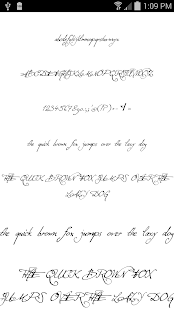 1:09 PM
abcdefghijklmnopqrstuvwxyz
ABCDEFGHIJKLMNOPQRSTUVWXYZ
the quick brown fox jumps over the lazy dog
THE QUICK BROWN FOX JUMPS OVER THE
LAZY DOG
the quick brown fox jumps over the lazy dog
THE QUICK BROWN FOX
JUMPS OVER THE LAZY DOG